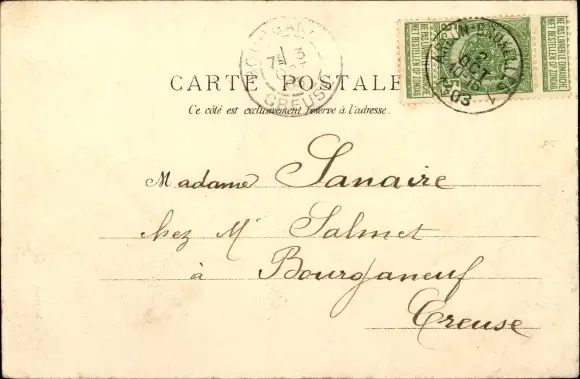 CARTE POSTALE
Ce côté est exclusivement réservé à l'adresse.
NE PAS LIVRER LE DIMANCHE
NIET BESTELLEN OP ZONDAG
NE PAS LIVRER LE DIMANCHE
NIET BESTELLEN OP ZONDAG
ARLON-BRUXELLES 1
2
OCT
03
BOURGANEUF
3
OCT
CREUSE
Madame Sanaire
chez Mr Salmet
à Bourganeuf
Creuse